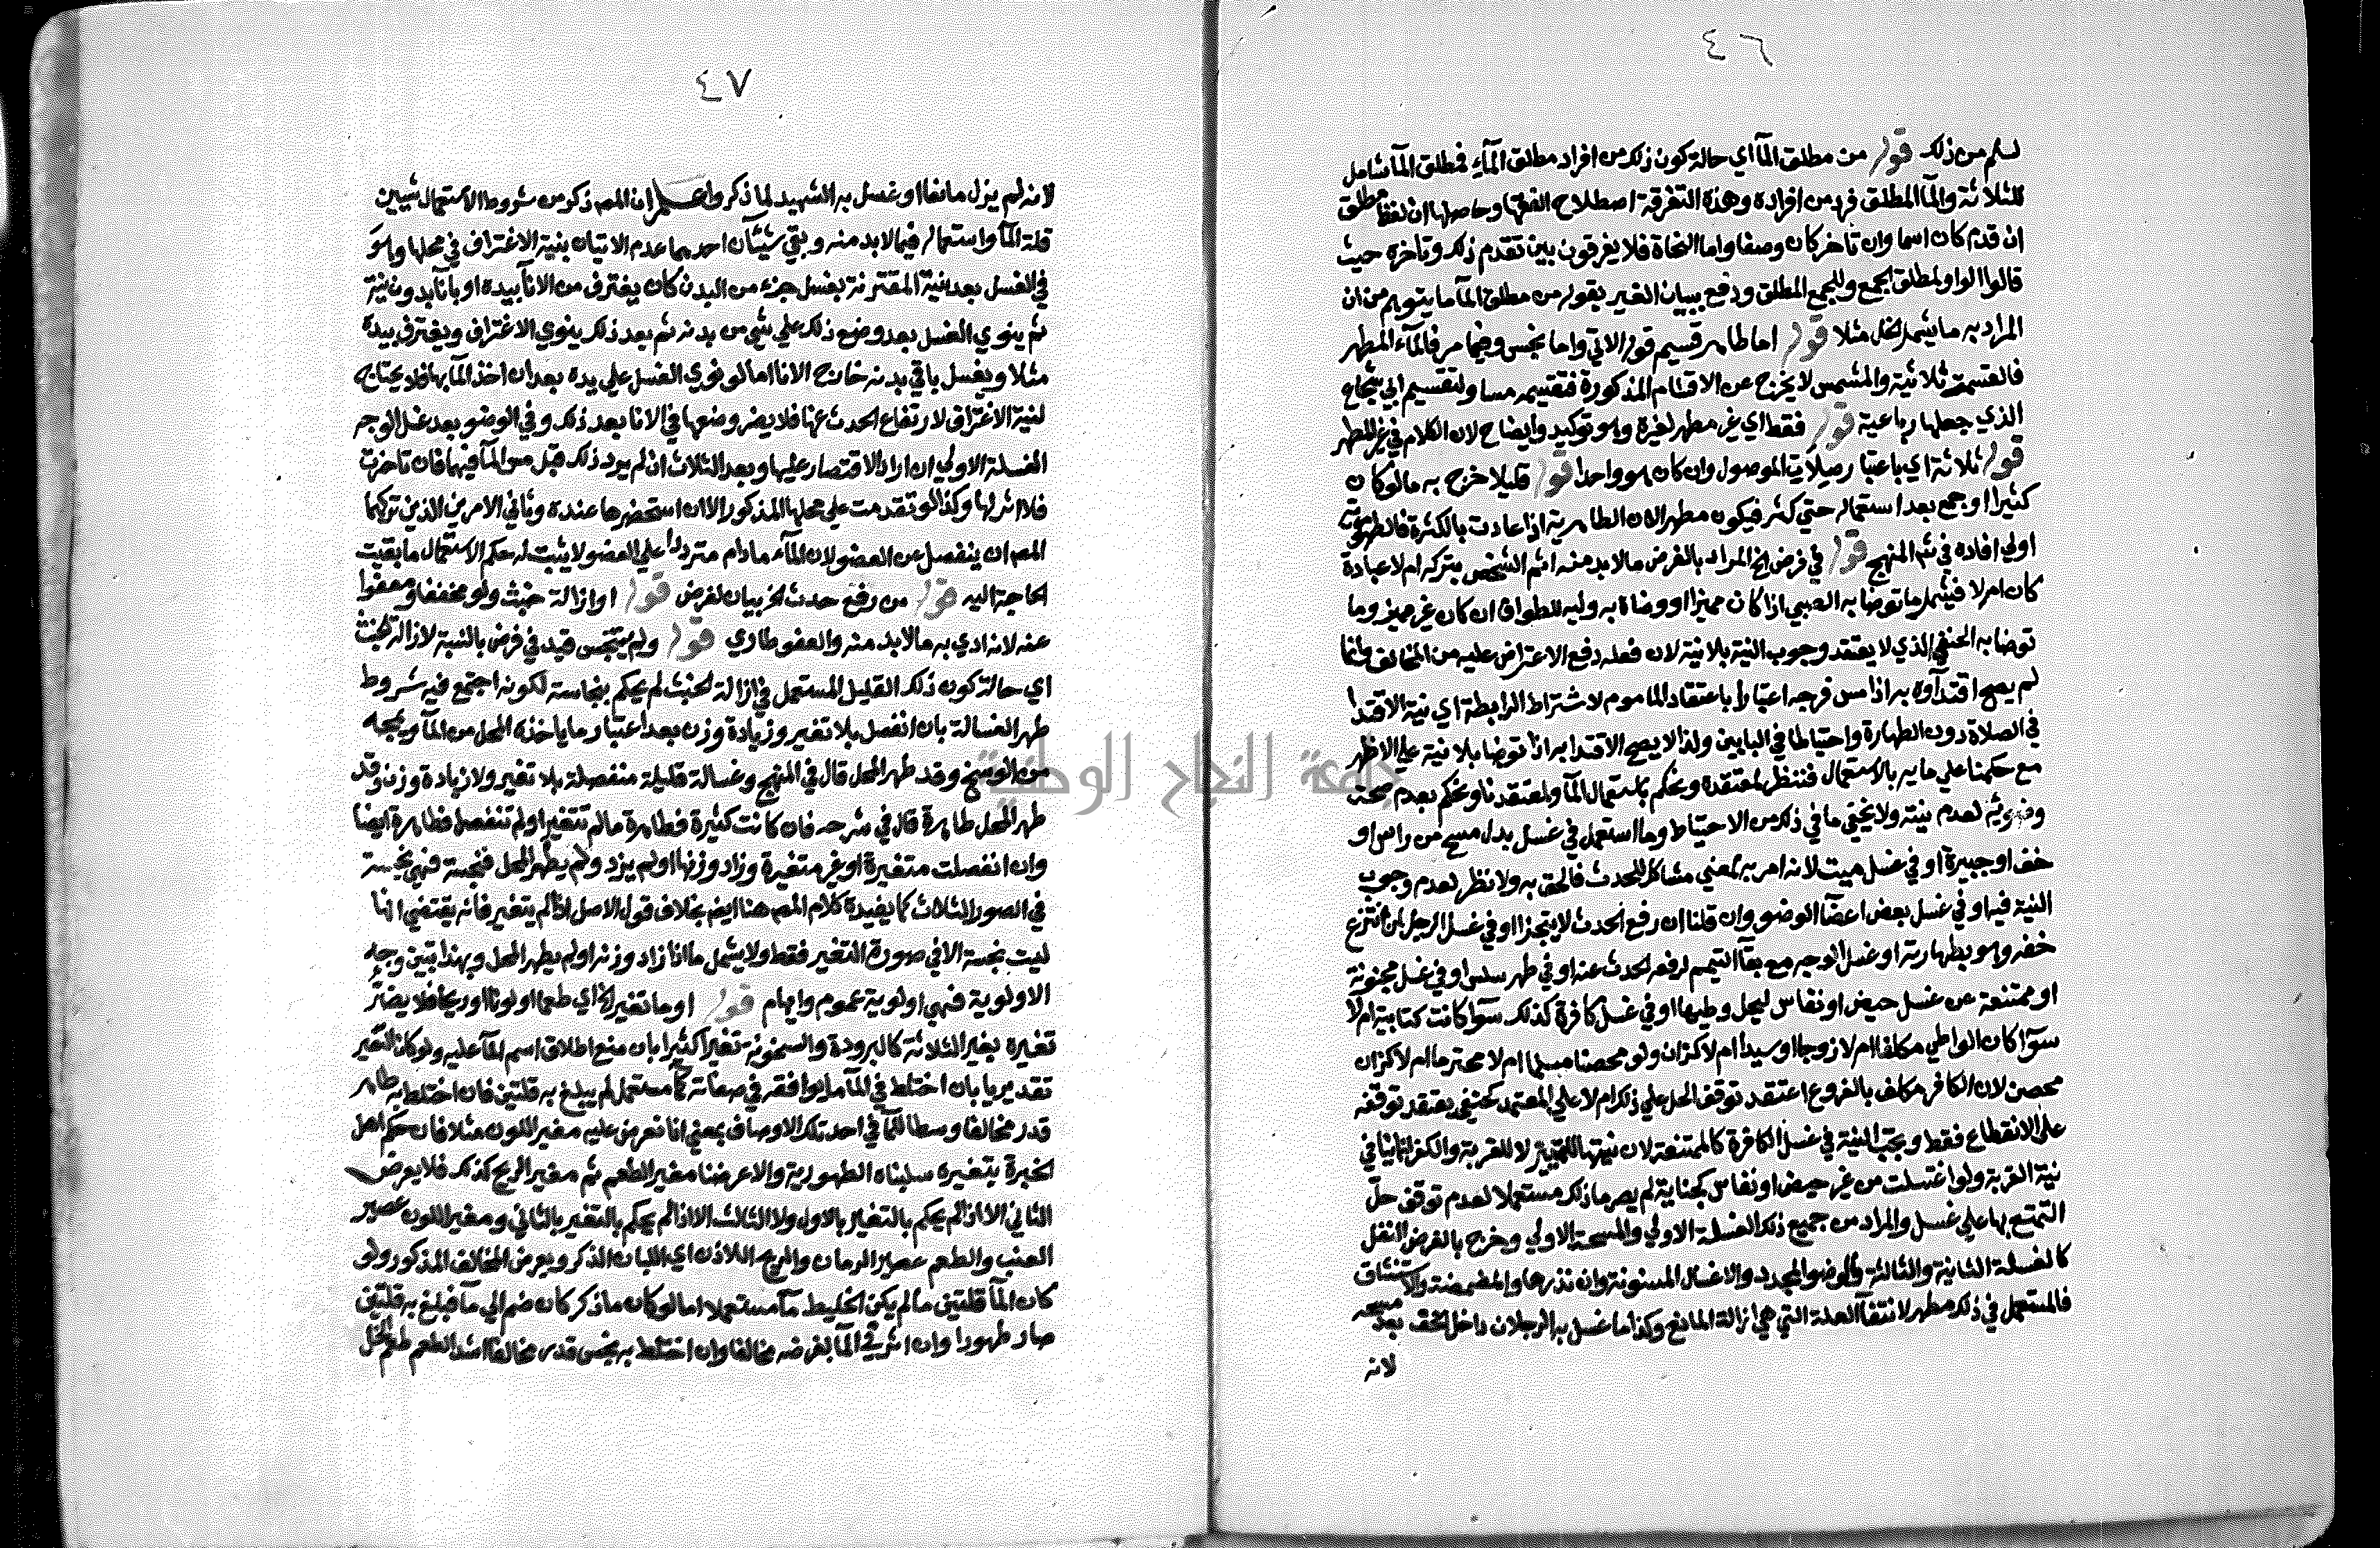 ٤٦
لسلم من ذلك قوله من مطلق المآ اي حالة كون ذلك من افراد مطلق المآء فمطلق المآ شامل
للثلاثة والمآ المطلق فرد من افراده وهذه التفرقة اصطلاح الفقها وحاصلها ان لفظ مطلق
ان قدم كان اسما وان تاخر كان وصفا واما النحاة فلا يفرقون بين تقدم ذلك وتاخره حيث
قالوا الواو لمطلق الجمع وللجمع المطلق ودفع ببيان الغير بقوله من مطلق المآ ما يتوهم من ان
المراد به ما يشمل الخل مثلا قوله اما طاهر قسيم قوله الاتي واما نجس وفيما مر فالمآء المطهر
فالقسمة ثلاثية والمشمس لا يخرج عن الاقسام المذكورة فتقسيمه مساو لتقسيم ابي شجاع
الذي جعلها رباعية قوله فقط اي غير مطهر لغيره وهو توكيد وايضاح لان الكلام في غير المطهر
قوله ثلاثة اي باعتبار صلات الموصول وان كان هو واحدا قوله قليلا خرج به ما لو كان
كثيرا او جمع بعد استعماله حتي كثر فيكون مطهرا لان الطاهرية اذا عادت بالكثرة فالطهورية
اولي افاده في شرح المنهج قوله في فرض الخ المراد بالفرض ما لا بد منه اثم الشخص بتركه ام لا عبادة
كان ام لا فيشمل ما توضا به الصبي اذا كان مميزا او وضاه به وليه للطواف ان كان غير مميز وما
توضا به الحنفي الذي لا يعتقد وجوب النية بلا نية لان فعله دفع الاعتراض عليه من المخالف وانما
لم يصح اقتدآوه به اذا مس فرجه اعتبارا باعتقاد الماموم لاشتراط الرابطة اي نية الاقتدا
في الصلاة دون الطهارة واحتياطا في البابين ولذا لا يصح الاقتدا به اذا توضا بلا نية علي الاظهر
مع حكمنا علي مايه بالاستعمال فننظر لمعتقده ونحكم باستعمال المآ ولمعتقدنا ونحكم بعدم صحة
وضوئه لعدم نيته ولا يخفي ما في ذلك من الاحتياط وما استعمل في غسل بدل مسح من راس او
خف او جبيرة او في غسل ميت لانه امر به لمعني مشاكل للحدث فالحق به ولا نظر لعدم وجوب
النية فيه او في غسل بعض اعضآ الوضو وان قلنا ان رفع الحدث لا يتجزا او في غسل الرجل لمن انتزع
خفه وهو بطهارته او غسل الوجه مع بقآ التيمم لرفعه الحدث عنه او في طهر سلس او في غسل مجنونة
او ممتنعة عن غسل حيض او نفاس ليحل وطيها او في غسل كافرة كذلك سوآ كانت كتابية ام لا
سوآ كان الواطي مكلفا ام لا زوجا او سيدا ام لا كزان ولو محصنا مسلما ام لا محترما ام لا كزان
محصن لان الكافر مكلف بالفروع اعتقد توقف الحل علي ذلك ام لا علي المعتمد كحنفي يعتقد توقفه
علي الانقطاع فقط ويجب النية في غسل الكافرة كالممتنعة لان نيتها للتمييز لا للقربة والكفر انما ينافي
نية القربة ولو اغتسلت من غير حيض او نفاس كجنابة لم يصر ماذلك مستعملا لعدم توقف حل
التمتع بها علي غسل والمراد من جميع ذلك الغسلة الاولي والمسحة الاولي وخرج بالفرض النفل
كالغسلة الثانية والثالثة والوضو المجدد والاغسال المسنونة وان نذرها والمضمضة والاستنشاق
فالمستعمل في ذلك مطهر لانتفآ العلة التي هي ازالة المانع وكذا ما غسل به الرجلان داخل الخف بعد مسحه
لانه
٤٧
لانه لم يزل مانعا او غسل به الشهيد لما ذكر واعلم ان المص ذكر من شروط الاستعمال شيين
قلة المآ واستعماله فيما لا بد منه وبقي شيئان احدهما عدم الاتيان بنية الاغتراف في محلها وهو
في الغسل بعد النية المقترنة بغسل جزء من البدن كان يغترف من الانآ بيده او بانآ بدون نية
ثم ينوي الغسل بعد وضع ذلك علي شي من بدنه ثم بعد ذلك ينوي الاغتراف ويغترف بيده
مثلا ويغسل باقي بدنه خارج الانا اما لو نوي الغسل علي يده بعد ان اخذ المآ بها فلا يحتاج
لنية الاغتراف لارتفاع الحدث عنها فلا يضر وضعها في الانا بعد ذلك وفي الوضو بعد غسل الوجه
الغسلة الاولي ان اراد الاقتصار عليها وبعد الثلاث ان لم يرد ذلك قبل مس المآ فيهما فان تاخرت
فلا اثر لها وكذا لو تقدمت علي محلها المذكور الا ان استحضرها عنده وثاني الامرين الذين تركهما
المص ان ينفصل عن العضو لان المآء مادام مترددا علي العضو لا يثبت له حكم الاستعمال ما بقيت
الحاجة اليه قوله من رفع حدث الخ بيان لفرض قوله او ازالة خبث ولو مخففا ومعفوا
عنه لانه ادي به ما لا بد منه والعفو طاري قوله ولم يتنجس قيد في فرض بالنسبة لازالة الخبث
اي حالة كون ذلك القليل المستعمل في ازالة الخبث لم يحكم بنجاسته لكونه اجتمع فيه شروط
طهر الغسالة بان انفصل بلا تغير وزيادة وزن بعد اعتبار ما ياخذه المحل من المآ ويمجه
من الوسخ وقد طهر المحل قال في المنهج وغسالة قليلة منفصلة بلا تغير ولا زيادة وزن وقد
طهر المحل طاهرة قال في شرحه فان كانت كثيرة فطاهرة مالم تتغير او لم تنفصل فطاهرة ايضا
وان انفصلت متغيرة او غير متغيرة وزاد وزنها او لم يزد ولم يطهر المحل فنجسة فهي نجسة
في الصور الثلاث كما يفيده كلام المص هنا ايض بخلاف قول الاصل اذا لم يتغير فانه يقتضي انها
ليست نجسة الا في صورة التغير فقط ولا يشمل ما اذا زاد وزنه او لم يطهر المحل وبهذا تبين وجه
الاولوية فهي اولوية عموم وايهام قوله او ما تغير الخ اي طعما او لونا او ريحا فلا يضر
تغيره بغير الثلاثة كالبرودة والسخونة تغيرا كثيرا بان منع اطلاق اسم المآ عليه ولو كان التغير
تقديريا بان اختلط في المآ ما يوافقه في صفاته كمآ مستعمل لم يبلغ به قلتين فان اختلط به طاهر
قدر مخالفا وسطا للمآ في احد تلك الاوصاف بمعني انا نعرض عليه مغير اللون مثلا فان حكم اهل
الخبرة بتغيره سلبناه الطهورية والا عرضنا مغير الطعم ثم مغير الريح كذلك فلا يعرض
الثاني الا اذا لم يحكم بالتغير بالاول ولا الثالث الا اذا لم يحكم بالتغير بالثاني ومغير اللون عصير
العنب والطعم عصير الرمان والريح اللاذن اي اللبان الذكر ويعرض المخالف المذكور ولو
كان المآ قلتين مالم يكن الخليط مآ مستعملا اما لو كان ماذكر كان ضم الي مآ فبلغ به قلتين
صار طهورا وان اثر في المآ بفرضه مخالفا وان اختلط به نجس قدر مخالفا اشد الطعم طعم الخل